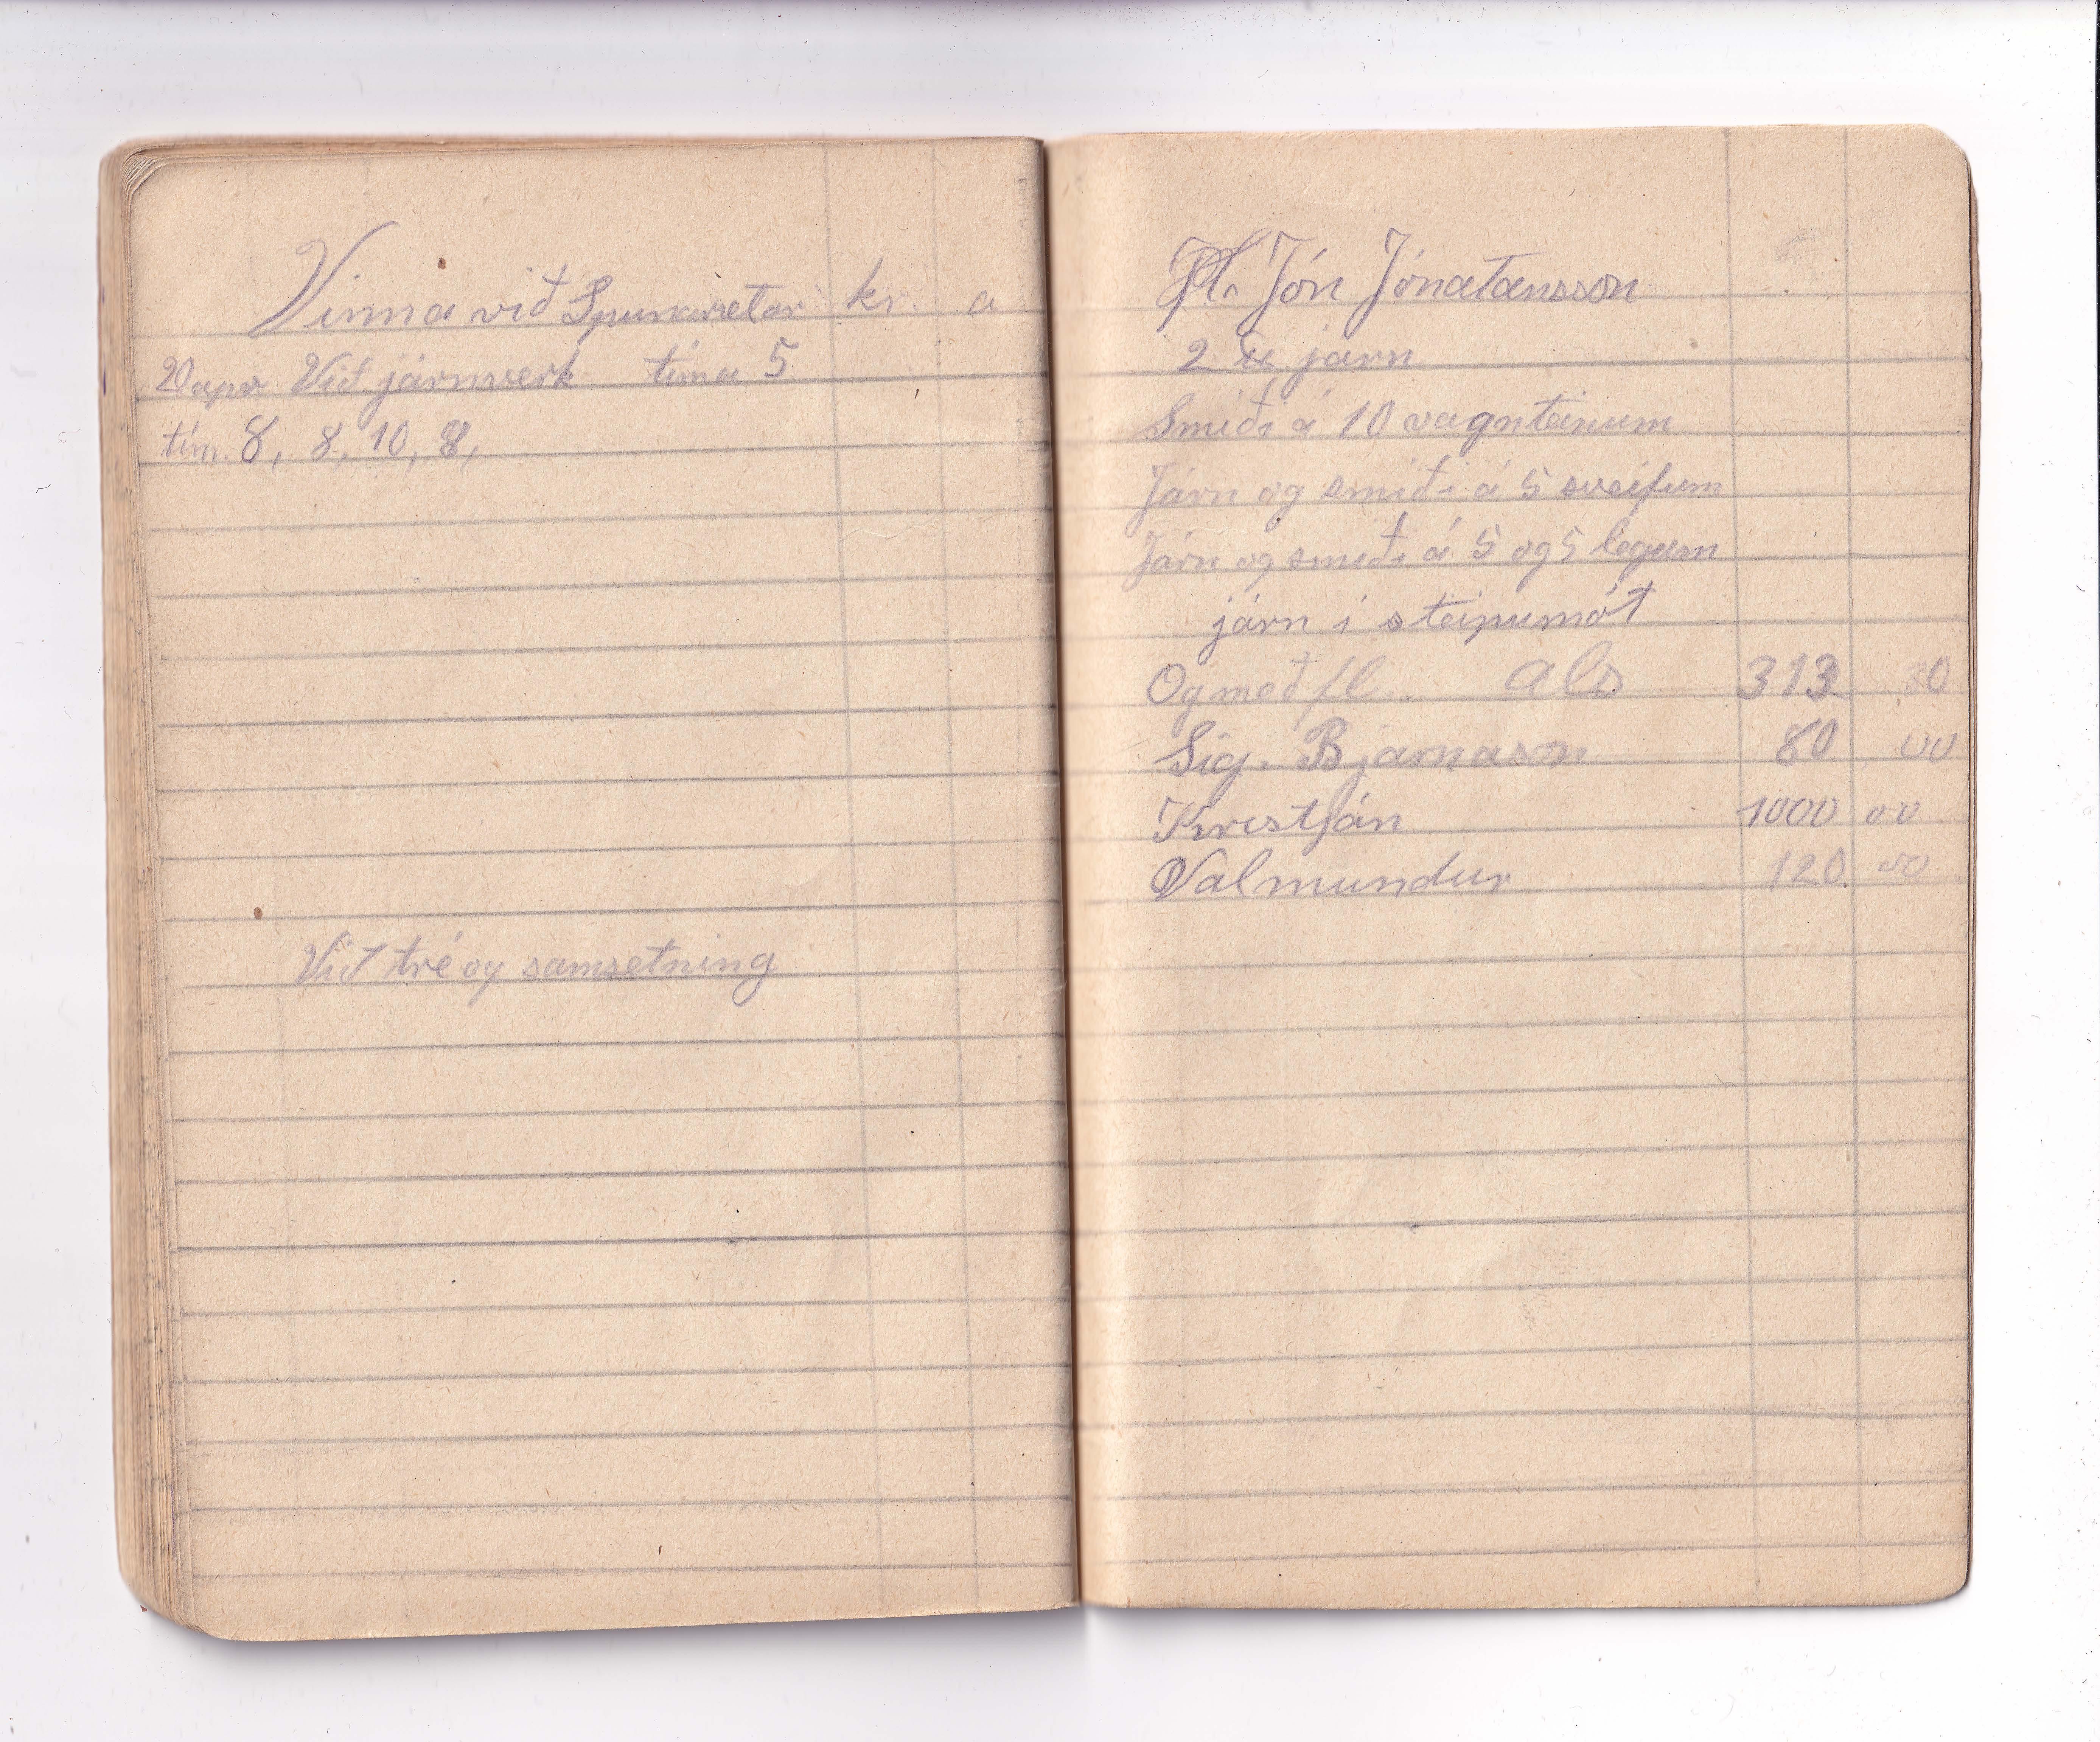 Vinna við kr. a
20 apr Við járnverk tíma 5
tím. 8, 8, 10, 8,
Við tré og samsetning
Jón Jónatansson
2 járn
Smíði á 10 vagnteinum
Járn og smíði á 5 sveifum
Járn og smíði á 5 og 5 legum
járn í steipumót
Og með fl. als 313
Sig. Bjarnason 80 00
Kristján 1000 00
Valmundur 120 00